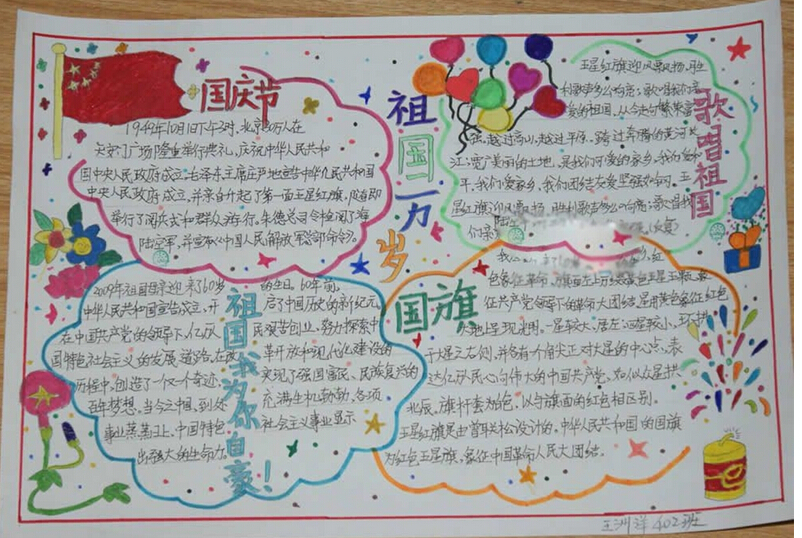 国庆节
1949年10月1日下午3时,北京30万人在
天安门广场隆重举行典礼,庆祝中华人民共和
国中央人民政府成立,毛泽东主席庄严地宣告中华人民共和国
中央人民政府成立,并亲自升起了第一面五星红旗,随即
举行了阅兵式和群众游行,朱德总司令检阅了海
陆空军,并宣布《中国人民解放军总部命令》。
祖国万岁
歌唱祖国
五星红旗迎风飘扬,胜
利歌声多么响亮;歌唱我们
爱的祖国,从今走向繁荣富
强,越过高山,越过平原,跨过奔腾的黄河长
江;宽广美丽的土地,是我们可爱的家乡,我们爱和
平,我们爱家乡,我们团结友爱坚强如钢。五
星红旗迎风飘扬,胜利歌声多么响亮;歌唱我
们亲
祖国我为你自豪!
2009年祖国母亲迎来了60岁的生日。60年前,
中华人民共和国宣告成立,开启了中国历史的新纪元
在中国共产党的领导下,亿万民艰苦创业,努力探索中
国特色社会主义的发展道路,在改革开放和现代化建设的
历程中,创造了一个又一个奇迹,实现了强国富民、民族复兴的
百年梦想,当今之中国,到处充满生机勃勃,各项
事业蒸蒸日上,中国特色社会主义事业显示
出强大的生命力
国旗
红
色象征革命,旗面左上方缀黄色五星五颗,象
征共产党领导下的革命人大团结,星用黄色象征红色
大地上呈现光明,一星较大,居左;四星较小,环拱
于大星之右侧,并各有一个角尖正对大星的中心点,表
达亿万人民心向伟大的中国共产党,如似众星拱
北辰,旗杆套为白色,以与旗面的红色相区别。
五星红旗是由曾联松设计的,中华人民共和国的国旗
为红色五星旗,象征中国革命人民大团结。
王洲洋 402班